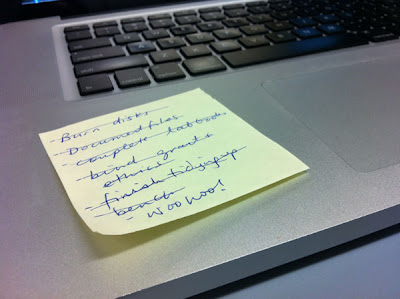 - Burn disks
- Document files
- complete lab books
- bind grants
ethics
- finish tidying up
bench
- Woohoo!